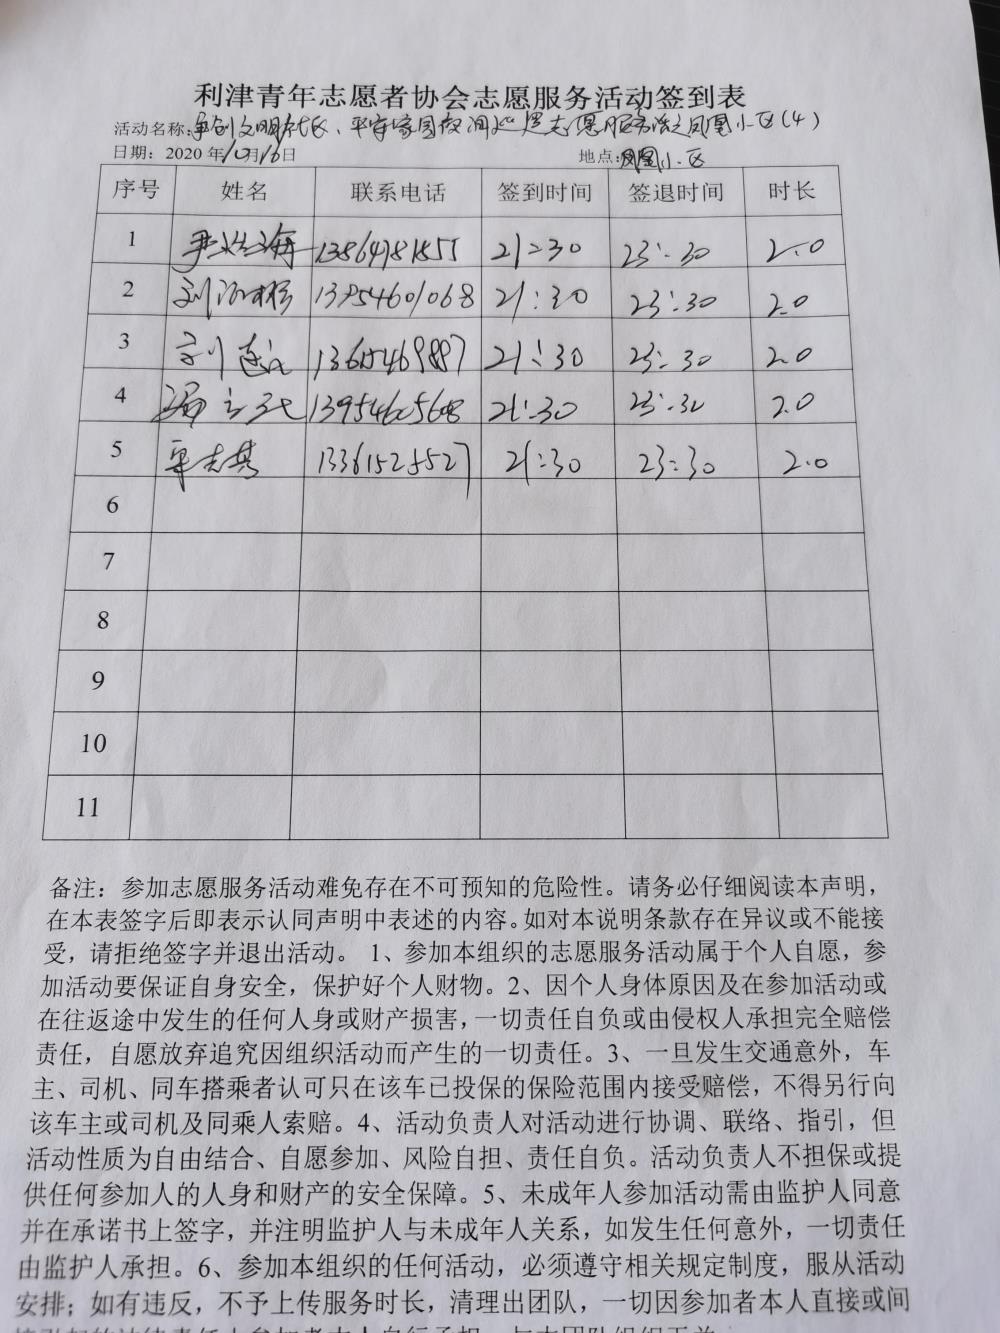 利津青年志愿者协会志愿服务活动签到表
活动名称:争创文明社区、平安家园夜间巡逻志愿服务活动凤凰小区(4)
日期：2020年10月16日 地点:凤凰小区
序号 姓名 联系电话 签到时间 签退时间 时长
1 21:30 23:30 2.0
2 13954601068 21:30 23:30 2.0
3 13615469887 21:30 23:30 2.0
4 13954605608 21:30 23:30 2.0
5 13361525527 21:30 23:30 2.0
6
7
8
9
10
11
备注：参加志愿服务活动难免存在不可预知的危险性。请务必仔细阅读本声明，
在本表签字后即表示认同声明中表述的内容。如对本说明条款存在异议或不能接
受，请拒绝签字并退出活动。 1、参加本组织的志愿服务活动属于个人自愿，参
加活动要保证自身安全，保护好个人财物。2、因个人身体原因及在参加活动或
在往返途中发生的任何人身或财产损害，一切责任自负或由侵权人承担完全赔偿
责任，自愿放弃追究因组织活动而产生的一切责任。3、一旦发生交通意外，车
主、司机、同车搭乘者认可只在该车已投保的保险范围内接受赔偿，不得另行向
该车主或司机及同乘人索赔。4、活动负责人对活动进行协调、联络、指引，但
活动性质为自由结合、自愿参加、风险自担、责任自负。活动负责人不担保或提
供任何参加人的人身和财产的安全保障。5、未成年人参加活动需由监护人同意
并在承诺书上签字，并注明监护人与未成年人关系，如发生任何意外，一切责任
由监护人承担。6、参加本组织的任何活动，必须遵守相关规定制度，服从活动
安排；如有违反，不予上传服务时长，清理出团队，一切因参加者本人直接或间